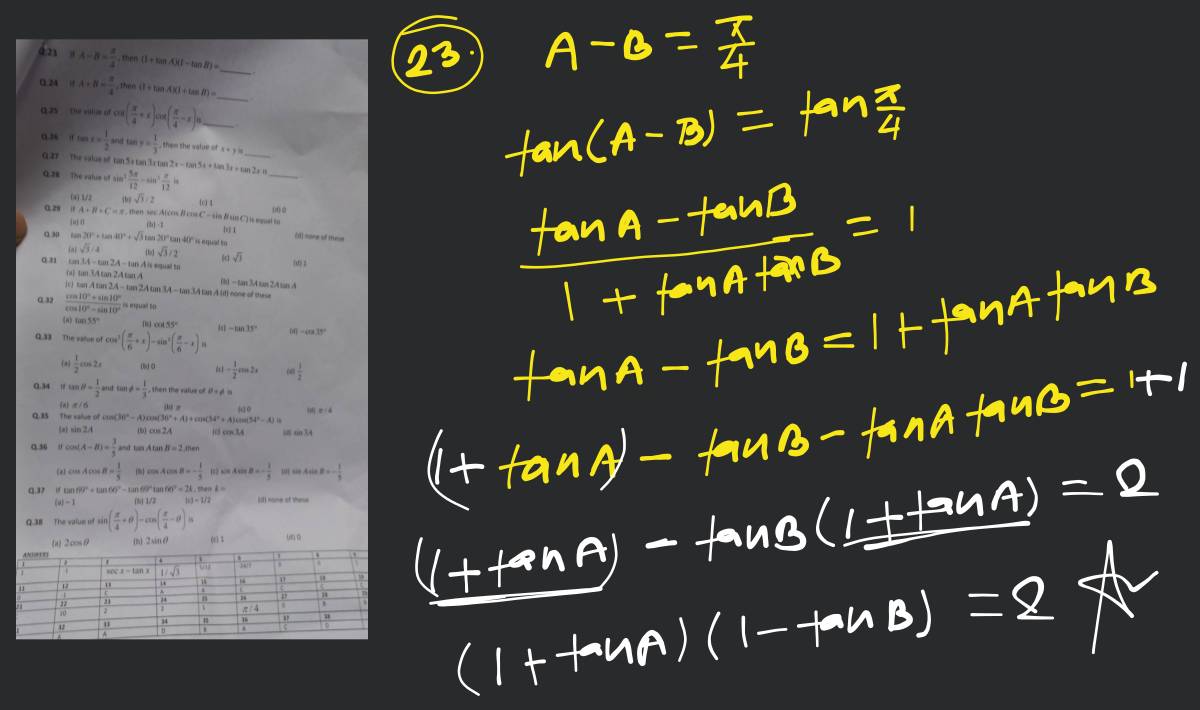 Q.23 If A−B=π/4, then (1+tan A)(1−tan B)=______.
Q.24 If A+B=π/4, then (1+tan A)(1+tan B)=______
Q.25 The value of cot(π/4+x)cot(π/4−x) is______.
Q.26 If tan x=1/2 and tan y=1/3, then the value of x+y is______
Q.27 The value of tan 5x tan 3x tan 2x−tan 5x+tan 3x+tan 2x is______
Q.28 The value of sin² 5π/12 −sin² π/12 is
(a) 1/2 (b) √3/2 (c) 1 (d) 0
Q.29 If A+B+C=π, then sec A(cos B cos C−sin B sin C) is equal to
(a) 0 (b) -1 (c) 1 (d) none of these
Q.30 tan 20°+tan 40°+√3 tan 20° tan 40° is equal to
(a) √3/4 (b) √3/2 (c) √3 (d) 1
Q.31 tan 3A−tan 2A−tan A is equal to
(a) tan 3A tan 2A tan A (b) −tan 3A tan 2A tan A
(c) tan A tan 2A−tan 2A tan 3A−tan 3A tan A (d) none of these
Q.32 cos 10°+sin 10° / cos 10°−sin 10° is equal to
(a) tan 55° (b) cot 55° (c) −tan 35° (d) −cot 35°
Q.33 The value of cos²(π/6+x)−sin²(π/6−x) is
(a) 1/2 cos 2x (b) 0 (c) −1/2 cos 2x (d) 1/2
Q.34 If tan θ=1/2 and tan ϕ=1/3, then the value of θ+ϕ is
(a) π/6 (b) π (c) 0 (d) π/4
Q.35 The value of cos(36°−A)cos(36°+A)+cos(54°+A)cos(54°−A) is
(a) sin 2A (b) cos 2A (c) cos 3A (d) sin 3A
Q.36 If cos(A−B)=3/5 and tan A tan B=2, then
(a) cos A cos B=1/5 (b) cos A cos B=−1/5 (c) sin A sin B=−1/5 (d) sin A sin B=−1/5
Q.37 If tan 69°+tan 66°−tan 69° tan 66°=2k, then k=
(a) −1 (b) 1/2 (c) −1/2 (d) none of these
Q.38 The value of sin(π/4+θ)−cos(π/4−θ) is
(a) 2cos θ (b) 2sin θ (c) 1 (d) 0
ANSWERS
sec x − tan x 1/√3
π/4
23.
A − B = π/4
tan(A − B) = tan π/4
tanA − tanB / 1 + tanA tanB = 1
tanA − tanB = 1 + tanA tanB
(1 + tanA) − tanB − tanA tanB = 1 + 1
(1 + tanA) − tanB (1 + tanA) = 2
(1 + tanA) (1 − tanB) = 2